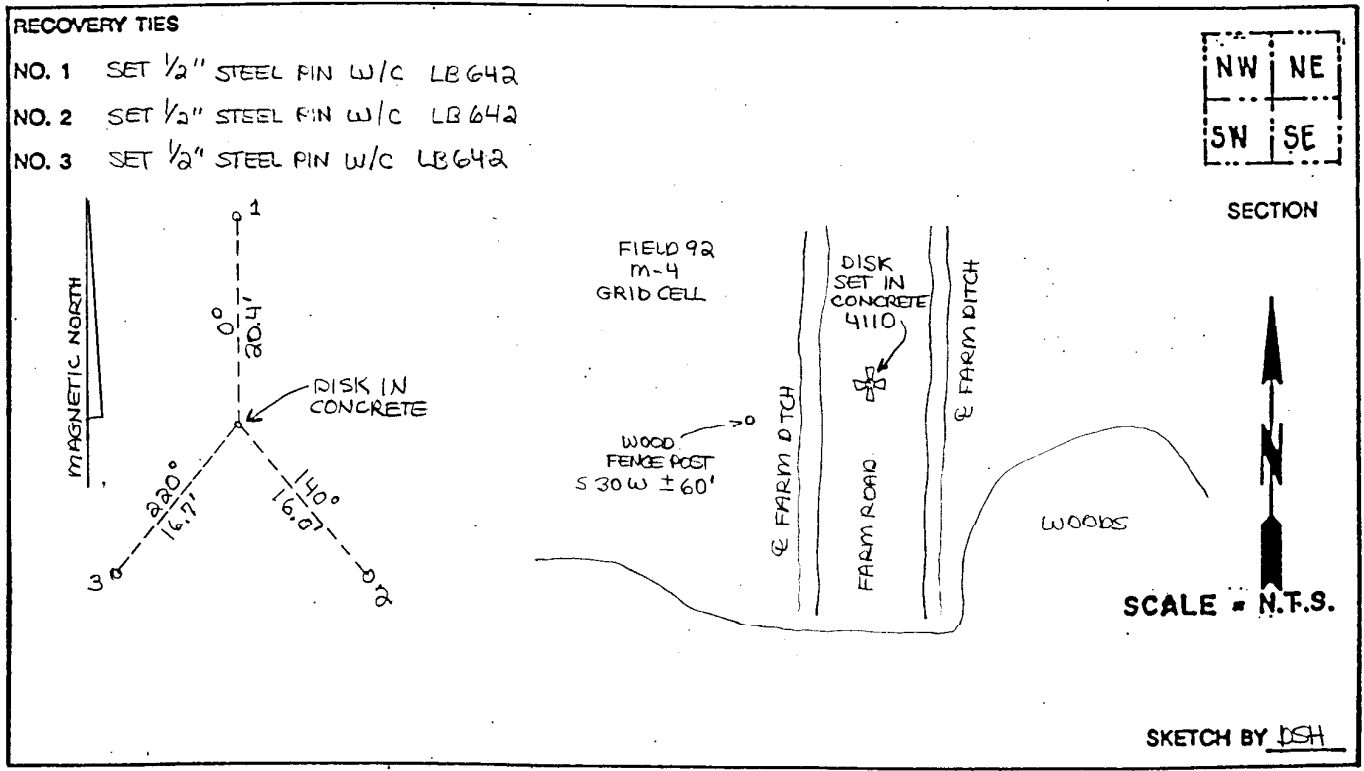 RECOVERY TIES
NO. 1 SET 1/2" STEEL PIN W/C LB642
NO. 2 SET 1/2" STEEL PIN W/C LB642
NO. 3 SET 1/2" STEEL PIN W/C LB642
NW NE
SW SE
SECTION
MAGNETIC NORTH
1
0°
20.4'
DISK IN
CONCRETE
220°
16.7'
140°
16.07
3
2
FIELD 92
M-4
GRID CELL
DISK
SET IN
CONCRETE
4110
℄ FARM DITCH
WOOD
FENCE POST
S 30 W ±60'
℄ FARM DTCH
FARM ROAD
WOODS
N
SCALE = N.T.S.
SKETCH BY DSH